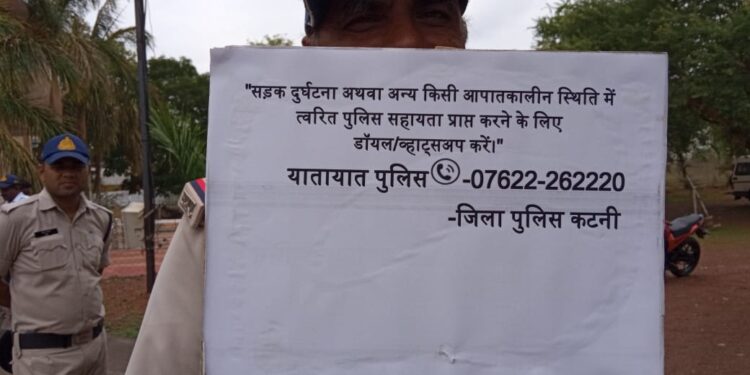 "सड़क दुर्घटना अथवा अन्य किसी आपातकालीन स्थिति में
त्वरित पुलिस सहायता प्राप्त करने के लिए
डॉयल/व्हाट्सअप करें।"
यातायात पुलिस -07622-262220
-जिला पुलिस कटनी